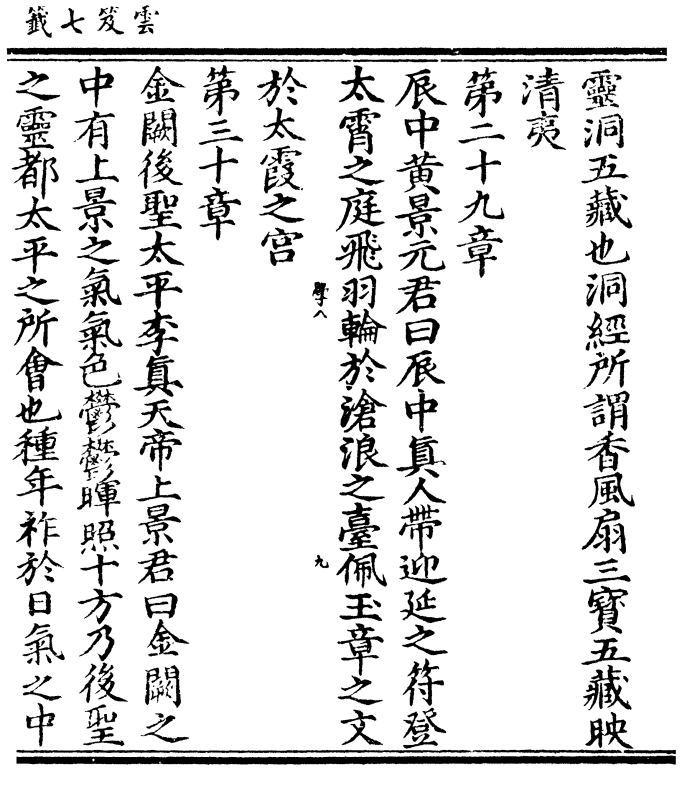 雲笈七籤
靈洞五藏也洞經所謂香風扇三寶五藏映
清夷
第二十九章
辰中黄景元君曰辰中真人帶迎延之符登
太霄之庭飛羽輪於滄浪之臺佩玉章之文
學八
九
於太霞之宮
第三十章
金闕後聖太平李真天帝上景君曰金闕之
中有上景之氣氣色鬱鬱暉照十方乃後聖
之靈都太平之所會也種年祚於日氣之中